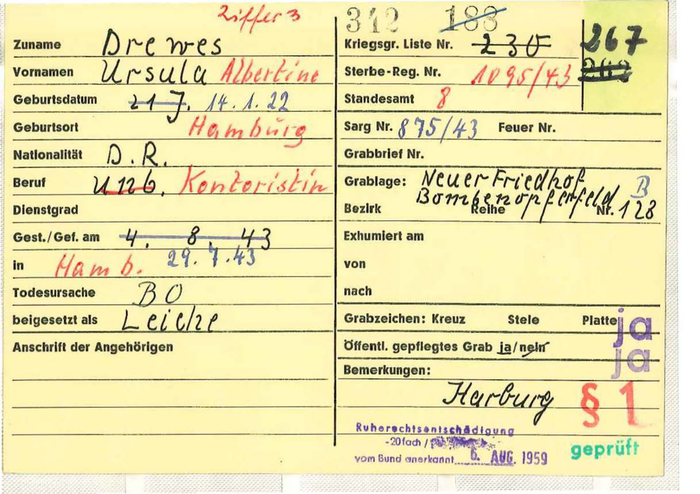 Ziffer 3
Zuname Drewes
Vornamen Ursula Albertine
Geburtsdatum 21 J. 14.1.22
Geburtsort Hamburg
Nationalität D.R.
Beruf Kontoristin
Dienstgrad
Gest./Gef. am 4. 8. 43
in Hamb. 29.7.43
Todesursache BO
beigesetzt als Leiche
Anschrift der Angehörigen
312 188
Kriegsgr. Liste Nr. 230 267
Sterbe-Reg. Nr. 1095/43 262
Standesamt 8
Sarg Nr. 875/43 Feuer Nr.
Grabbrief Nr.
Grablage: Neuer Friedhof
Bombenopferfeld B
Bezirk Reihe Nr. 128
Exhumiert am
von
nach
Grabzeichen: Kreuz Stele Platte ja
Öffentl. gepflegtes Grab ja/nein ja
Bemerkungen:
Harburg § 1
Ruherechtsentschädigung
-20fach /
vom Bund anerkannt 6. AUG. 1959
geprüft